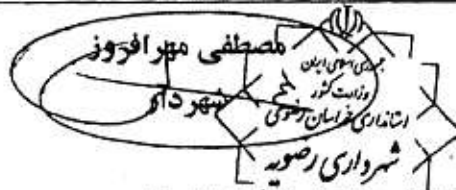 مصطفی مهرافروز
شهردار
جمهوری اسلامی ایران
وزارت کشور
استانداری خراسان رضوی
شهرداری رضویه